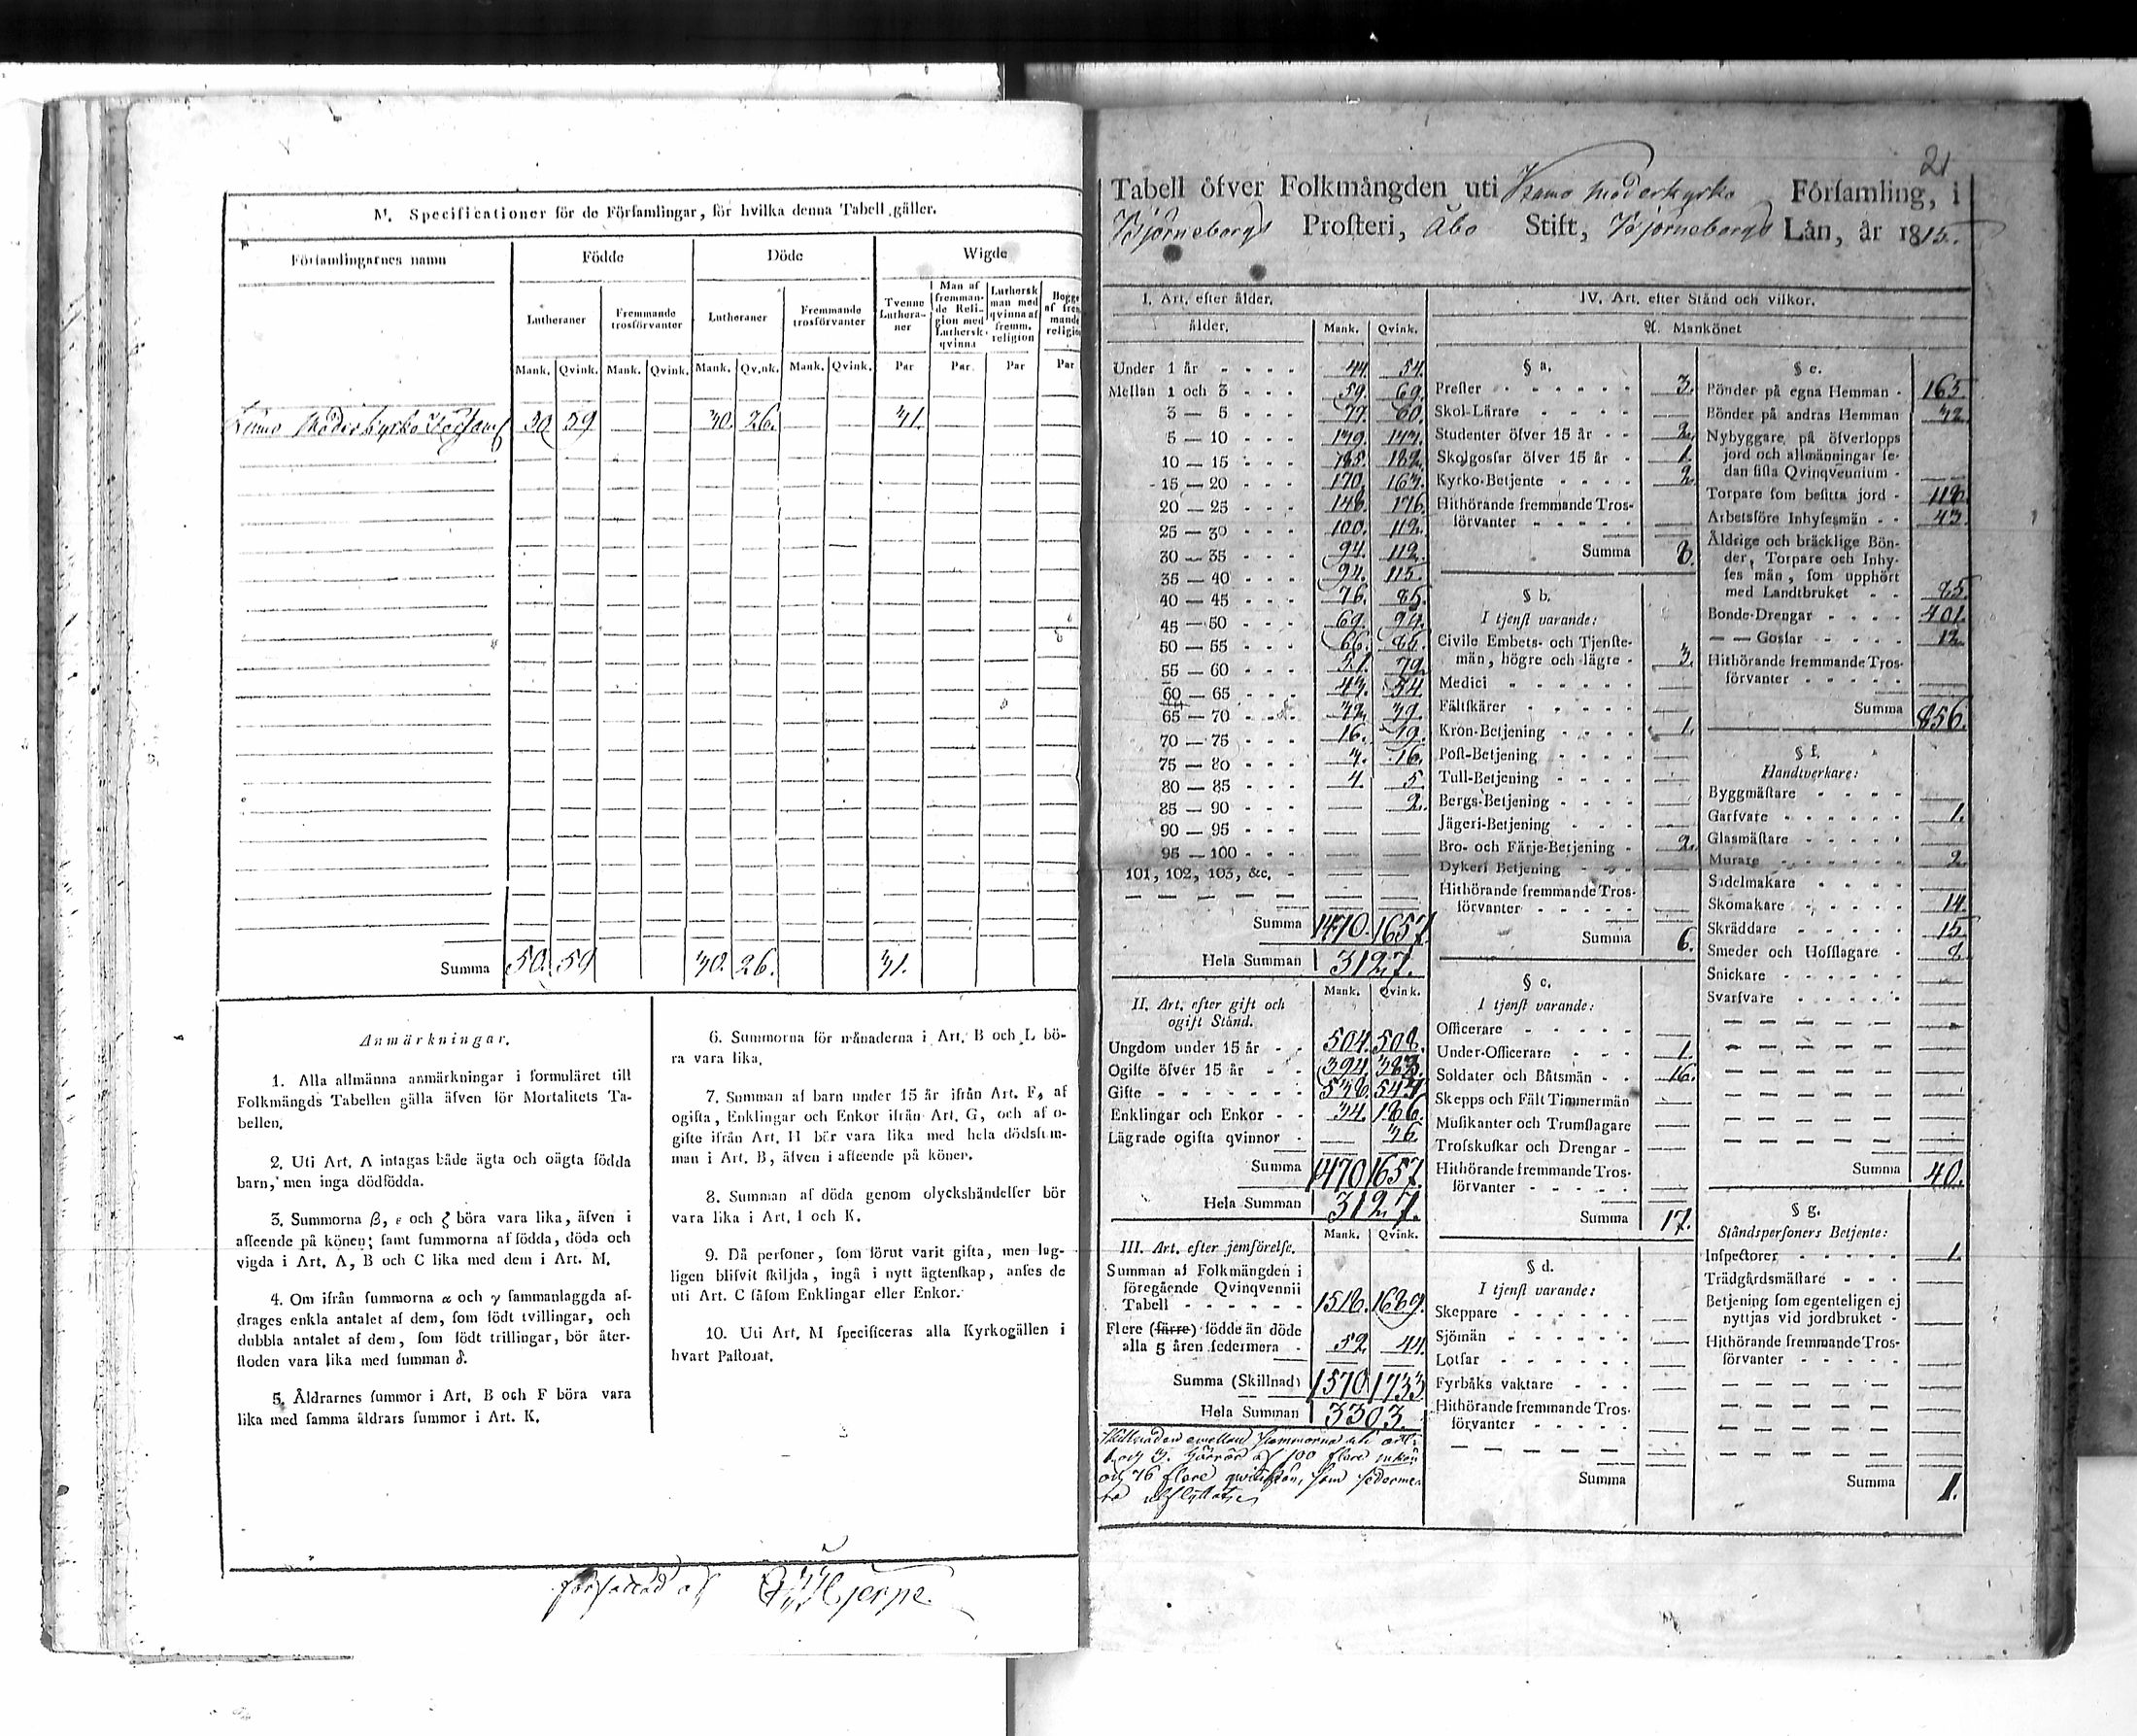 M. Specificationer för de Församlingar, för hvilka denna Tabell gäller.
Församlingarnes namn | Födde | Döde | Wigde
Lutheraner | Fremmande trosförvanter | Lutheraner | Fremmande trosförvanter | Tvenne Lutheraner | 1 Man af fremmande Religion med Luthersk qvinna | Luthersk man med qvinna af fremm. religion
Mank. Qvink. Mank. Qvink. Mank. Qvink. Mank. Qvink. Par Par Par Par
Kumo Moderkyrko Församl 50 59 30. 26. 31.
Summa 50. 59 30. 26. 31.
Anmärkningar.
1. Alla allmänna anmärkningar i formuläret till
Folkmängds Tabellen gälla äfven för Mortalitets Ta-
bellen.
2. Uti Art. A intagas både ägta och oägta födda
barn, men inga dödfödda.
3. Summorna β, ε och ζ böra vara lika, äfven i
afseende på könen; samt summorna af födda, döda och
vigda i Art. A, B och C lika med dem i Art. M.
4. Om ifrån summorna α och γ sammanlaggda af-
drages enkla antalet af dem, som födt tvillingar, och
dubbla antalet af dem, som födt trillingar, bör åter-
stoden vara lika med summan δ.
5. Åldrarnes summor i Art. B och F böra vara
lika med samma åldrars summor i Art. K.
6. Summorna för månaderna i Art. B och L bö-
ra vara lika.
7. Summan af barn under 15 år ifrån Art. F, af
ogifta, Enklingar och Enkor ifrån Art. G, och af o-
gifte ifrån Art. H bör vara lika med hela dödsum-
man i Art. B, äfven i afseende på könen.
8. Summan af döda genom olyckshändelser bör
vara lika i Art. I och K.
9. Då personer, som förut varit gifta, men lag-
ligen blifvit skiljda, ingå i nytt ägtenskap, anses de
uti Art. C såsom Enklingar eller Enkor.
10. Uti Art. M specificeras alla Kyrkogällen i
hvart Pastorat.
författad af
21
Tabell öfver Folkmängden uti Kumo Moderkyrko Församling, i
Björneborgs Prosteri, Åbo Stift, Björneborgs Län, år 1815.
I. Art. efter ålder.
ålder. Mank. Qvink.
Under 1 år 44. 54.
Mellan 1 och 3 59. 69.
3 — 5 77. 60.
5 — 10
10 — 15 185. 182.
15 — 20 170. 163.
20 — 25 148. 176.
25 — 30 100. 112.
30 — 35 94. 112.
35 — 40 115.
40 — 45 76. 85.
45 — 50 69.
50 — 55 66.
55 — 60 79.
60 — 65 43. 54.
65 — 70 39.
70 — 75 16. 19.
75 — 80 16.
80 — 85 4. 5.
85 — 90 2.
90 — 95
95 — 100
101, 102, 103, &c.
Summa 1470. 1657.
Hela Summan 3127.
II. Art. efter gift och
ogift Stånd. Mank. Qvink.
Ungdom under 15 år 504. 508.
Ogifte öfver 15 år 394. 383.
Gifte 538. 544.
Enklingar och Enkor 34. 186.
Lägrade ogifta qvinnor 36.
Summa 1470 1657.
Hela Summan 3127.
III. Art. efter jemförelse. Mank. Qvink.
Summan af Folkmängden i
föregående Qvinqvennii
Tabell 1518. 1689.
Flere (färre) födde än döde
alla 5 åren sedermera 52. 44.
Summa (Skillnad) 1570 1733
Hela Summan 3303.
Skillnaden emellan summorna uti art.
af 100 flere mankön
och 76 flere qvinkön, som sederme-
ra afflyttat
IV. Art. efter Stånd och vilkor.
A. Mankönet
§ a.
Prester 3.
Skol-Lärare
Studenter öfver 15 år 2.
Skolgossar öfver 15 år 1.
Kyrko-Betjente 2.
Hithörande fremmande Tros-
förvanter
Summa 8.
§ b.
I tjenst varande:
Civile Embets- och Tjenste-
män, högre och lägre 3.
Medici
Fältskärer
Kron-Betjening 1.
Post-Betjening
Tull-Betjening
Bergs-Betjening
Jägeri-Betjening
Bro- och Färje-Betjening 2.
Dykeri Betjening
Hithörande fremmande Tros-
förvanter
Summa 6.
§ c.
I tjenst varande:
Officerare
Under-Officerare 1.
Soldater och Båtsmän 16.
Skepps och Fält Timmermän
Musikanter och Trumslagare
Trosskuskar och Drengar
Hithörande fremmande Tros-
förvanter
Summa 17.
§ d.
I tjenst varande:
Skeppare
Sjömän
Lotsar
Fyrbåks vaktare
Hithörande fremmande Tros-
förvanter
Summa
§ e.
Bönder på egna Hemman 165
Bönder på andras Hemman 32.
Nybyggare på öfverlopps
jord och allmänningar se-
dan sista Qvinqvennium
Torpare som besitta jord 118.
Arbetsföre Inhysesmän 43.
Åldrige och bräcklige Bön-
der, Torpare och Inhy-
ses män, som upphört
med Landtbruket 85.
Bonde-Drengar 401.
— — Gossar 12.
Hithörande fremmande Tros-
förvanter
Summa 856.
§ f.
Handtverkare:
Byggmästare
Garfvare 1.
Glasmästare
Murare 2.
Sadelmakare
Skomakare 14.
Skräddare 15.
Smeder och Hofslagare 8.
Snickare
Svarfvare
Summa 40.
§ g.
Ståndspersoners Betjente:
Inspectorer 1.
Trädgårdsmästare
Betjening som egenteligen ej
nyttjas vid jordbruket
Hithörande fremmande Tros-
förvanter
Summa 1.